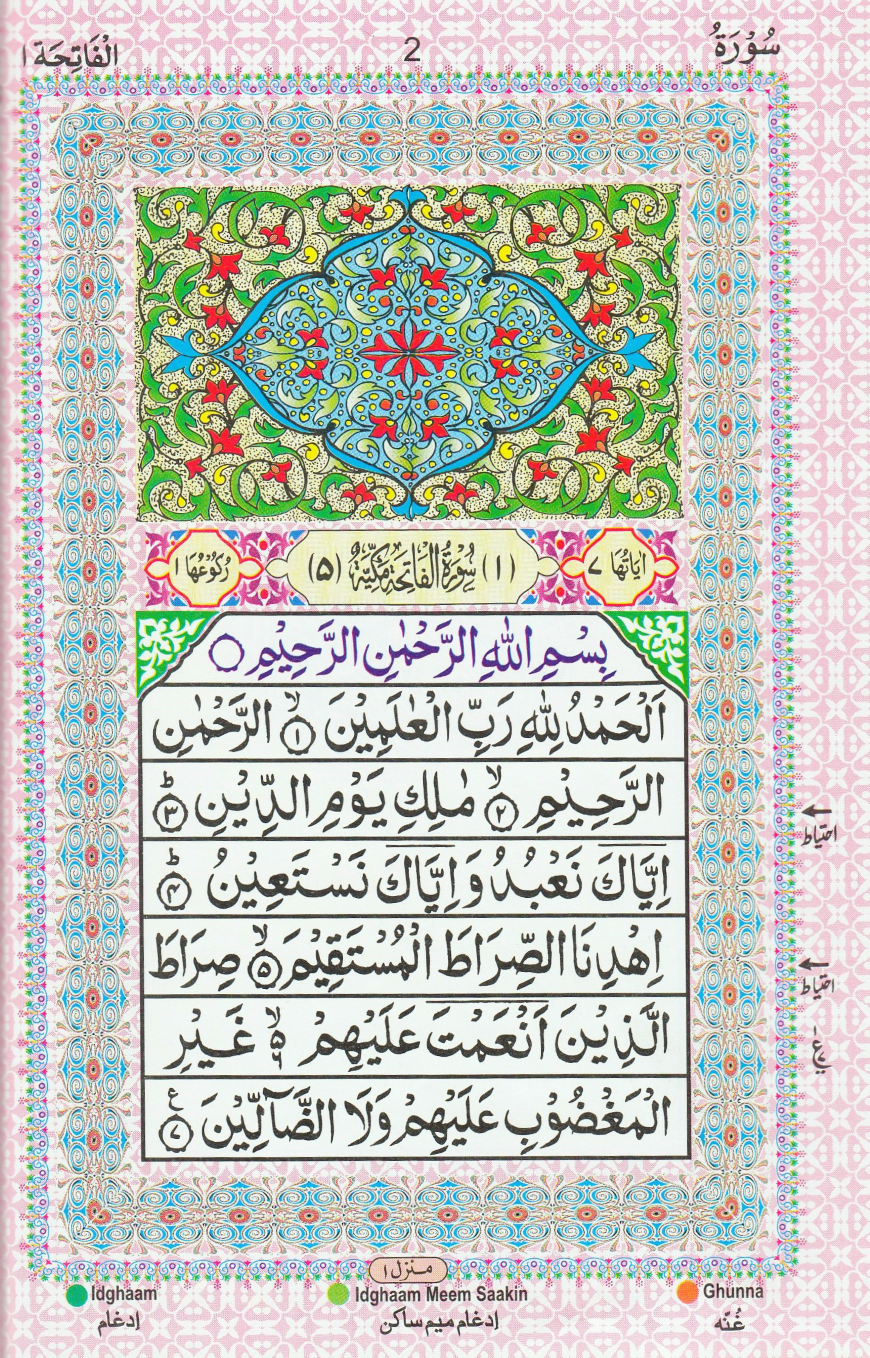 سُوْرَةُ 2 الْفَاتِحَة ١
اٰيَاتُهَا ٧ (١) سُوْرَةُ الْفَاتِحَةِ مَكِّيَّةٌ (٥) رُكُوْعُهَا ١
بِسْمِ اللّٰهِ الرَّحْمٰنِ الرَّحِيْمِ ۝
اَلْحَمْدُ لِلّٰهِ رَبِّ الْعٰلَمِيْنَ ۙ﴿١﴾ الرَّحْمٰنِ
الرَّحِيْمِ ۙ﴿٢﴾ مٰلِكِ يَوْمِ الدِّيْنِ ؕ﴿٣﴾
احتیاط
اِيَّاكَ نَعْبُدُ وَ اِيَّاكَ نَسْتَعِيْنُ ؕ﴿٤﴾
اِهْدِنَا الصِّرَاطَ الْمُسْتَقِيْمَ ۙ﴿٥﴾ صِرَاطَ
احتیاط
الَّذِيْنَ اَنْعَمْتَ عَلَيْهِمْ ۙ۵ ٦ غَيْرِ
الْمَغْضُوْبِ عَلَيْهِمْ وَلَا الضَّآلِّيْنَ ﴿٧﴾ ع
منزل ١
Idghaam Idghaam Meem Saakin Ghunna
إدغام إدغام ميم ساكن غُنّه